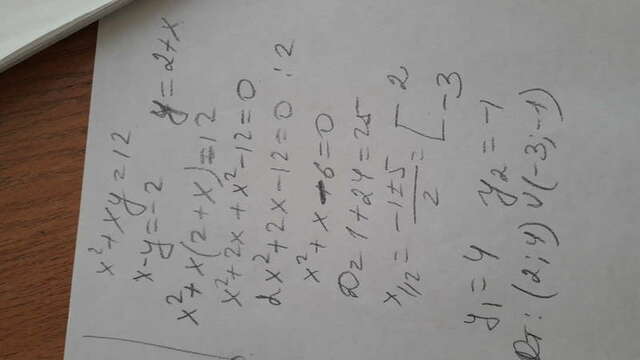 x² + xy = 12
x - y = -2 y = 2 + x
x² + x(2 + x) = 12
x² + 2x + x² - 12 = 0
2x² + 2x - 12 = 0 :2
x² + x - 6 = 0
D = 1 + 24 = 25
x1/2 = (-1 ± 5)/2 = [ 2 -3
y₁ = 4 y₂ = -1
От: (2; 4) ∪ (-3; -1)